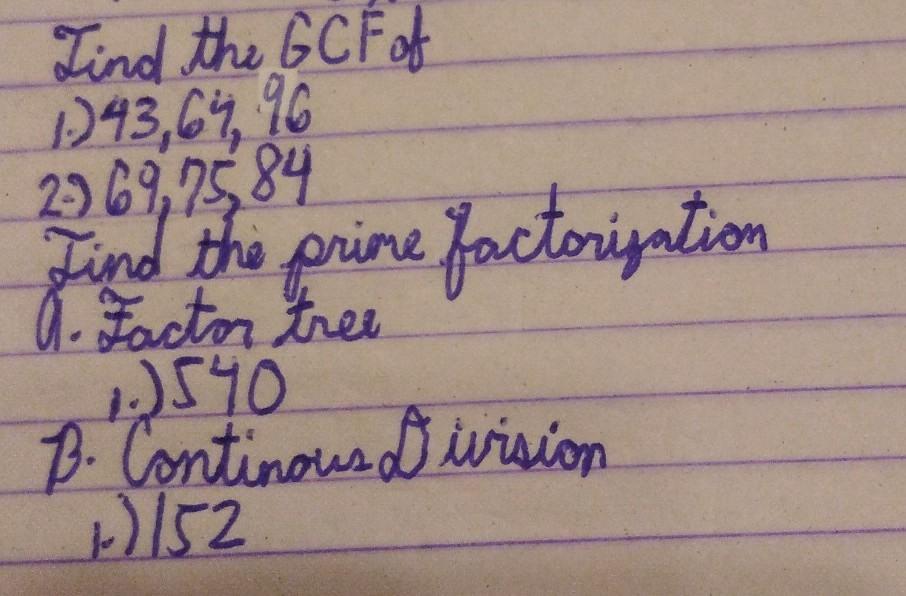 Find the GCF of
1.) 43, 64, 96
2.) 69, 75, 84
Find the prime factorization
A. Factor tree
1.) 540
B. Continous Division
1.) 152